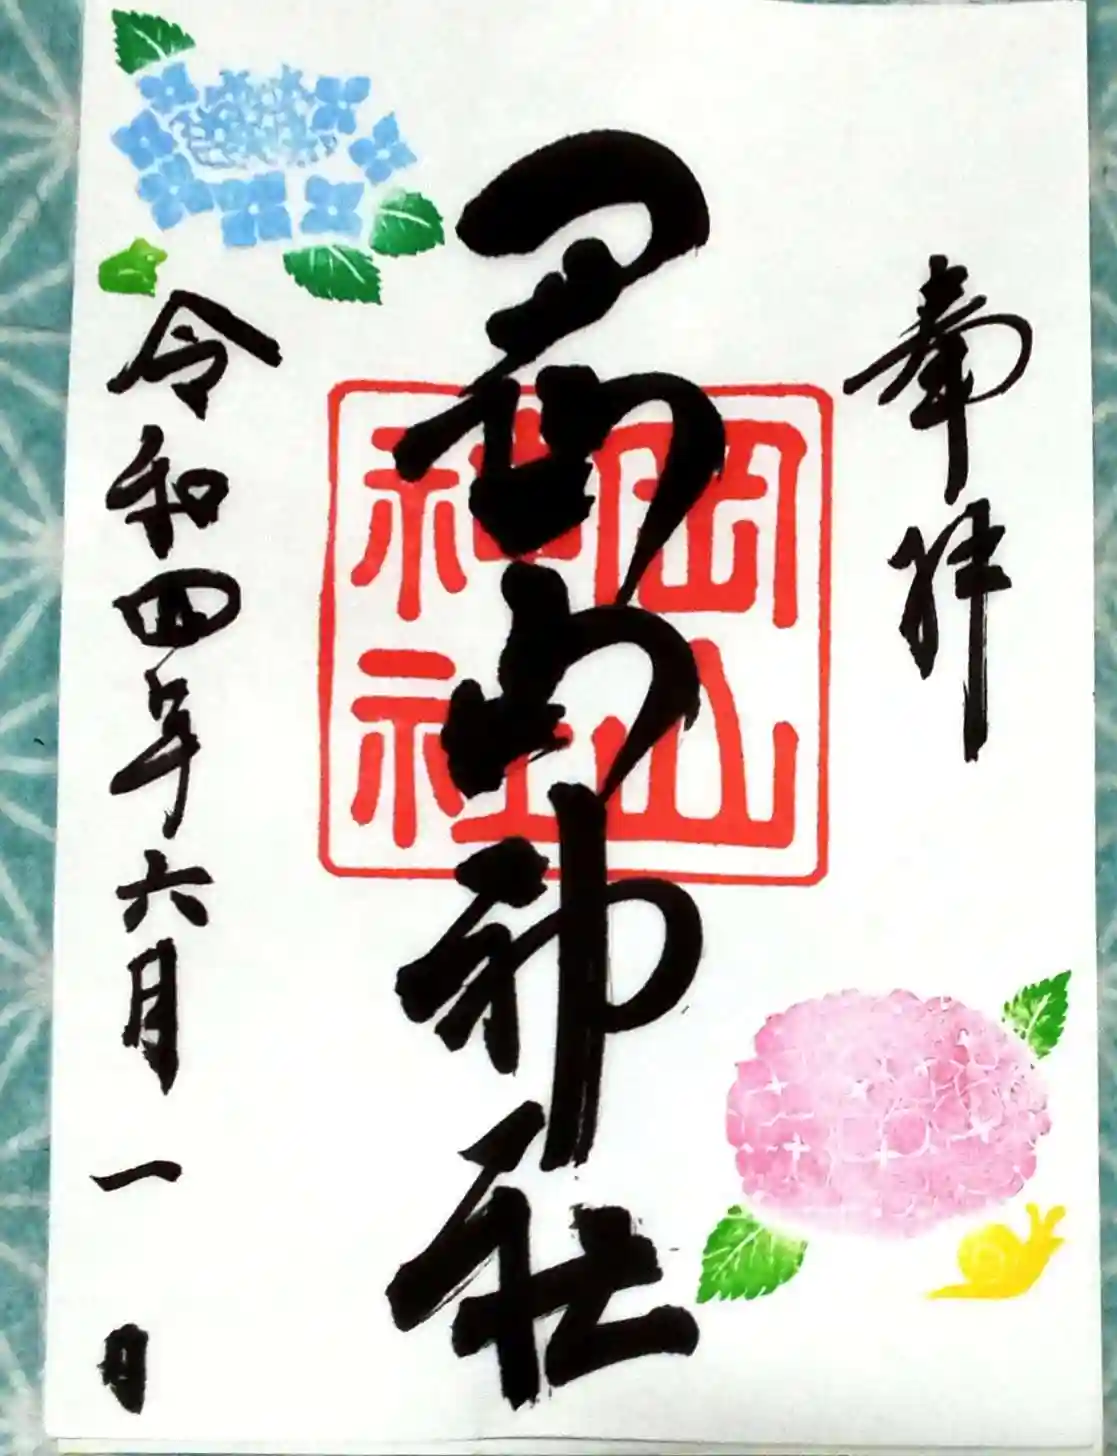 奉拝
岡山神社
岡山
神社
令和四年六月一日